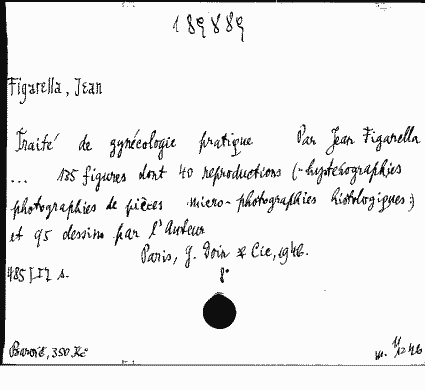 189889
Figarella, Jean
Traité de gynécologie pratique Par Jean Figarella
... 135 figures dont 40 reproductions (-hysterographies
photographies de pièces micro-photographies histologiques-)
et 95 dessins par l'Auteur
Paris, G. Doin & Cie, 1946.
485 s. 8°
350 Kč